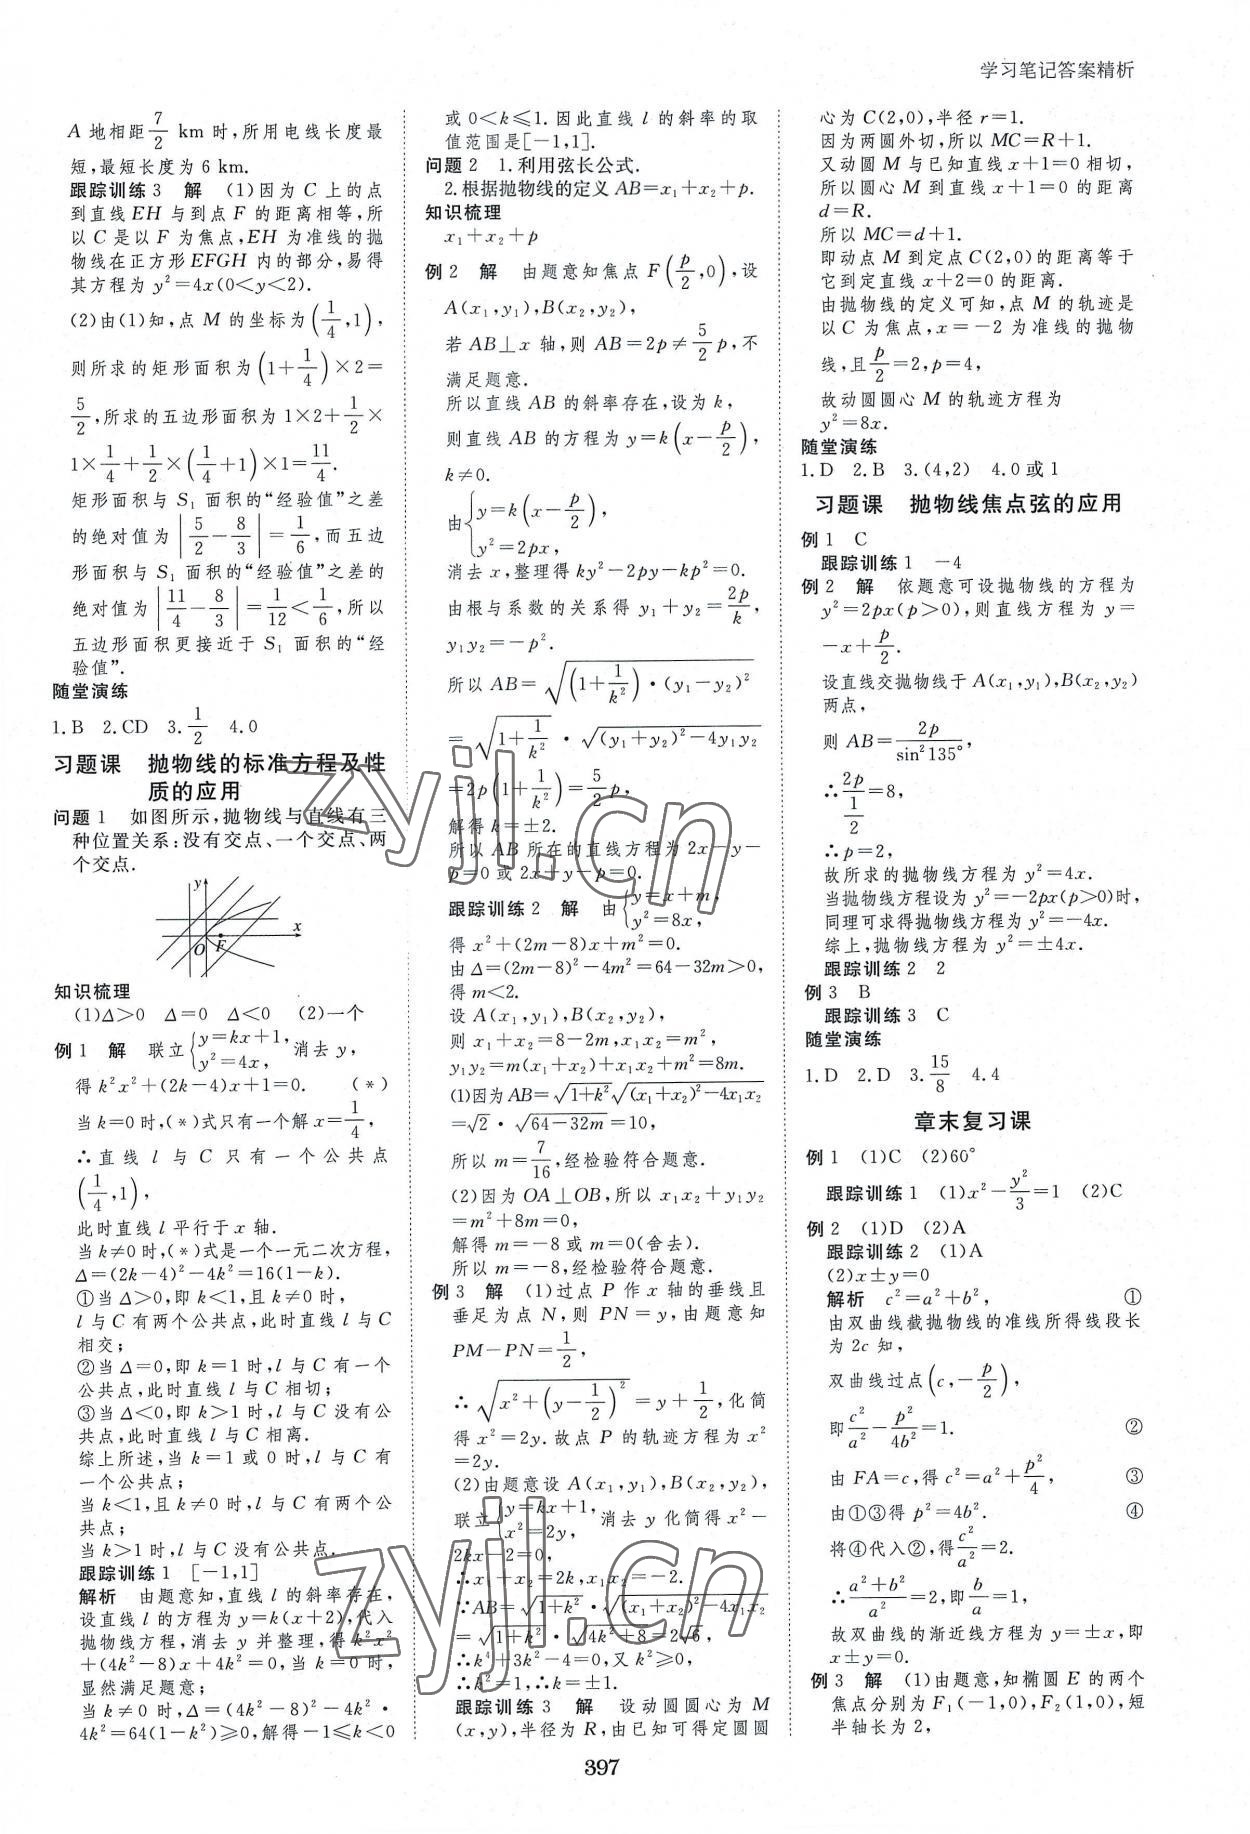 学习笔记答案精析
A 地相距 7/2 km 时,所用电线长度最
短,最短长度为 6 km.
跟踪训练 3 解 (1)因为 C 上的点
到直线 EH 与到点 F 的距离相等,所
以 C 是以 F 为焦点,EH 为准线的抛
物线在正方形 EFGH 内的部分,易得
其方程为 y²=4x(0<y<2).
(2)由(1)知,点 M 的坐标为(1/4,1),
则所求的矩形面积为(1+1/4)×2=
5/2,所求的五边形面积为 1×2+1/2×
1×1/4+1/2×(1/4+1)×1=11/4.
矩形面积与 S₁ 面积的“经验值”之差
的绝对值为|5/2-8/3|=1/6,而五边
形面积与 S₁ 面积的“经验值”之差的
绝对值为|11/4-8/3|=1/12<1/6,所以
五边形面积更接近于 S₁ 面积的“经
验值”.
随堂演练
1.B 2.CD 3.1/2 4.0
习题课 抛物线的标准方程及性
质的应用
问题 1 如图所示,抛物线与直线有三
种位置关系:没有交点、一个交点、两
个交点.
y
x
O F
知识梳理
(1)Δ>0 Δ=0 Δ<0 (2)一个
例 1 解 联立{y=kx+1, y²=4x, 消去 y,
得 k²x²+(2k-4)x+1=0. (*)
当 k=0 时,(*)式只有一个解 x=1/4,
∴直线 l 与 C 只有一个公共点
(1/4,1),
此时直线 l 平行于 x 轴.
当 k≠0 时,(*)式是一个一元二次方程,
Δ=(2k-4)²-4k²=16(1-k).
①当 Δ>0,即 k<1,且 k≠0 时,
l 与 C 有两个公共点,此时直线 l 与 C
相交;
②当 Δ=0,即 k=1 时,l 与 C 有一个
公共点,此时直线 l 与 C 相切;
③当 Δ<0,即 k>1 时,l 与 C 没有公
共点,此时直线 l 与 C 相离.
综上所述,当 k=1 或 0 时,l 与 C 有
一个公共点;
当 k<1,且 k≠0 时,l 与 C 有两个公
共点;
当 k>1 时,l 与 C 没有公共点.
跟踪训练 1 [-1,1]
解析 由题意知,直线 l 的斜率存在,
设直线 l 的方程为 y=k(x+2),代入
抛物线方程,消去 y 并整理,得 k²x²
+(4k²-8)x+4k²=0.当 k=0 时,
显然满足题意;
当 k≠0 时,Δ=(4k²-8)²-4k²·
4k²=64(1-k²)≥0,解得-1≤k<0
或 0<k≤1.因此直线 l 的斜率的取
值范围是[-1,1].
问题 2 1.利用弦长公式.
2.根据抛物线的定义 AB=x₁+x₂+p.
知识梳理
x₁+x₂+p
例 2 解 由题意知焦点 F(p/2,0),设
A(x₁,y₁),B(x₂,y₂),
若 AB⊥x 轴,则 AB=2p≠5/2 p,不
满足题意.
所以直线 AB 的斜率存在,设为 k,
则直线 AB 的方程为 y=k(x-p/2),
k≠0.
由{y=k(x-p/2), y²=2px,
消去 x,整理得 ky²-2py-kp²=0.
由根与系数的关系得 y₁+y₂=2p/k,
y₁y₂=-p².
所以 AB=√((1+1/k²)·(y₁-y₂)²)
=√(1+1/k²)·√((y₁+y₂)²-4y₁y₂)
=2p(1+1/k²)=5/2 p,
解得 k=±2.
所以 AB 所在的直线方程为 2x-y-
p=0 或 2x+y-p=0.
跟踪训练 2 解 由{y=x+m, y²=8x,
得 x²+(2m-8)x+m²=0.
由 Δ=(2m-8)²-4m²=64-32m>0,
得 m<2.
设 A(x₁,y₁),B(x₂,y₂),
则 x₁+x₂=8-2m,x₁x₂=m²,
y₁y₂=m(x₁+x₂)+x₁x₂+m²=8m.
(1)因为 AB=√(1+k²)√((x₁+x₂)²-4x₁x₂)
=√2·√(64-32m)=10,
所以 m=7/16,经检验符合题意.
(2)因为 OA⊥OB,所以 x₁x₂+y₁y₂
=m²+8m=0,
解得 m=-8 或 m=0(舍去).
所以 m=-8,经检验符合题意.
例 3 解 (1)过点 P 作 x 轴的垂线且
垂足为点 N,则 PN=y,由题意知
PM-PN=1/2,
∴√(x²+(y-1/2)²)=y+1/2,化简
得 x²=2y.故点 P 的轨迹方程为 x²
=2y.
(2)由题意设 A(x₁,y₁),B(x₂,y₂),
联立{y=kx+1, x²=2y, 消去 y 化简得 x²-
2kx-2=0,
∴x₁+x₂=2k,x₁x₂=-2.
∵AB=√(1+k²)·√((x₁+x₂)²-4x₁x₂)
=√(1+k²)·√(4k²+8)=2√6,
∴k⁴+3k²-4=0,又 k²≥0,
∴k²=1,∴k=±1.
跟踪训练 3 解 设动圆圆心为 M
(x,y),半径为 R,由已知可得定圆圆
心为 C(2,0),半径 r=1.
因为两圆外切,所以 MC=R+1.
又动圆 M 与已知直线 x+1=0 相切,
所以圆心 M 到直线 x+1=0 的距离
d=R.
所以 MC=d+1.
即动点 M 到定点 C(2,0)的距离等于
它到定直线 x+2=0 的距离.
由抛物线的定义可知,点 M 的轨迹是
以 C 为焦点,x=-2 为准线的抛物
线,且 p/2=2,p=4,
故动圆圆心 M 的轨迹方程为
y²=8x.
随堂演练
1.D 2.B 3.(4,2) 4.0 或 1
习题课 抛物线焦点弦的应用
例 1 C
跟踪训练 1 -4
例 2 解 依题意可设抛物线的方程为
y²=2px(p>0),则直线方程为 y=
-x+p/2.
设直线交抛物线于 A(x₁,y₁),B(x₂,y₂)
两点,
则 AB=2p/sin²135°,
∴2p/(1/2)=8,
∴p=2,
故所求的抛物线方程为 y²=4x.
当抛物线方程设为 y²=-2px(p>0)时,
同理可求得抛物线方程为 y²=-4x.
综上,抛物线方程为 y²=±4x.
跟踪训练 2 2
例 3 B
跟踪训练 3 C
随堂演练
1.D 2.D 3.15/8 4.4
章末复习课
例 1 (1)C (2)60°
跟踪训练 1 (1)x²-y²/3=1 (2)C
例 2 (1)D (2)A
跟踪训练 2 (1)A
(2)x±y=0
解析 c²=a²+b², ①
由双曲线截抛物线的准线所得线段长
为 2c 知,
双曲线过点(c,-p/2),
即c²/a²-p²/4b²=1. ②
由 FA=c,得 c²=a²+p²/4, ③
由①③得 p²=4b². ④
将④代入②,得c²/a²=2.
∴(a²+b²)/a²=2,即b/a=1,
故双曲线的渐近线方程为 y=±x,即
x±y=0.
例 3 解 (1)由题意,知椭圆 E 的两个
焦点分别为 F₁(-1,0),F₂(1,0),短
半轴长为 2,
397
zyjl.cn
zyjl.cn